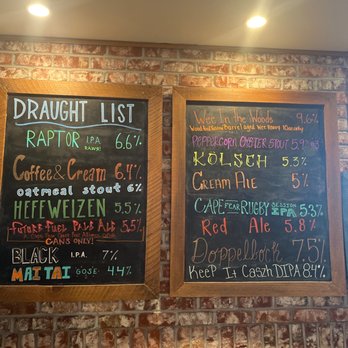 DRAUGHT LIST
RAPTOR I.P.A. 6.6%
RAWR!
Coffee & Cream 6.4%
oatmeal stout 6%
HEFEWEIZEN 5.5%
FUTURE FUEL PALE ALE 5.5%
CANS ONLY!
BLACK I.P.A. 7%
MAI TAI GOSE 4.4%
Wee In the Woods 9.6%
Barrel aged Wee Heavy
PEPPERCORN OYSTER STOUT 5.9%
KÖLSCH 5.3%
CREAM ALE 5%
CAPE FEAR RUGBY SESSION IPA 5.3%
Red Ale 5.8%
Doppelbock 7.5%
KeeP It Cazsh DIPA 8.4%